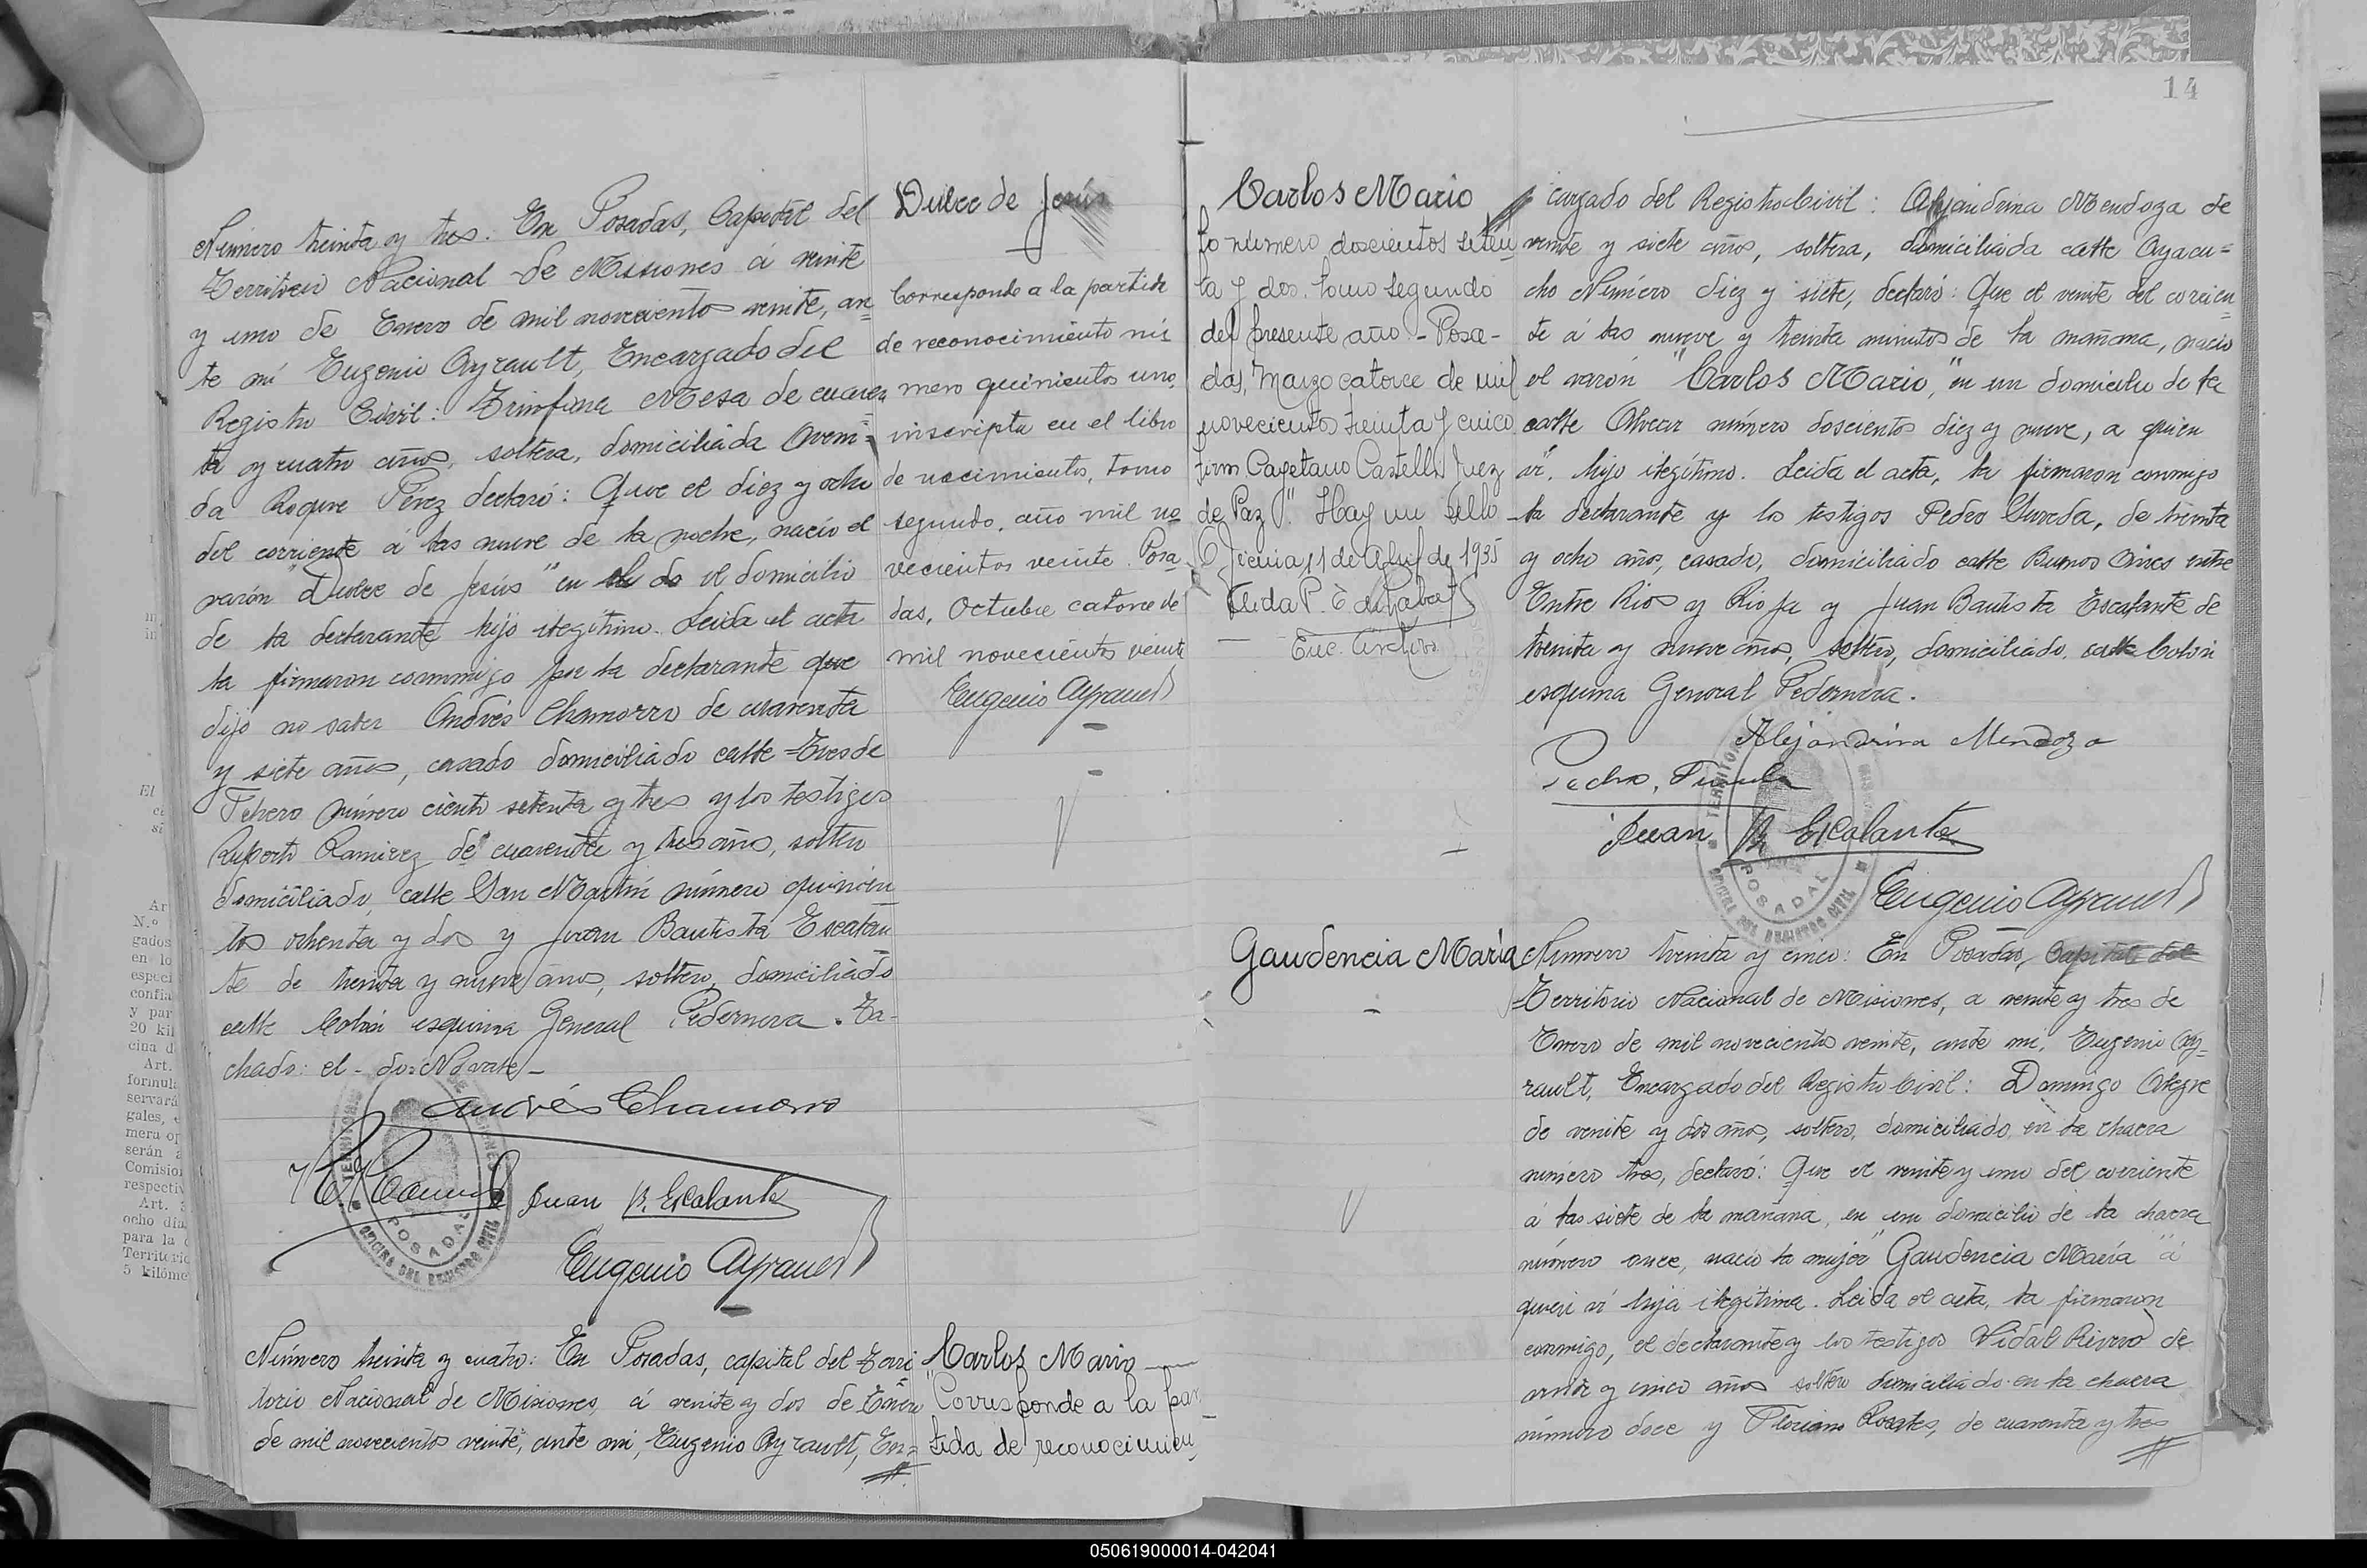 Número treinta y tres: En Posadas, Capital del
Territorio Nacional de Misiones á veinte
y uno de Enero de mil novecientos veinte, an
te mí Eugenio Ayrault, Encargado del
Registro Civil: Trinfona Mesa de cuaren
ta y cuatro años, soltera, domiciliada Aveni=
da Roque Pérez declaró: Que el diez y ocho
del corriente á las nueve de la noche, nació el
varón "Dulce de Jesús" en el do el domicilio
de la declarante hijo ilegítimo. Leida el acta
la firmaron conmigo por la declarante que
dijo no saber Andrés Chamorro de cuarenta
y siete años, casado domiciliado calle Tres de
Febrero número ciento setenta y tres y los testigos
Ruperto Ramirez de cuarenta y tres años, soltero
domiciliado calle San Martín número quinien
tos ochenta y dos y Juan Bautista Escalan
te de treinta y nueve años, soltero, domiciliado
calle Colón esquina General Pedernera. Ta-
chado: el - do: No vale -
Andrés Chamorro
Juan B. Escalante
Eugenio Ayrault
Dulce de Jesús
Corresponde a la partida
de reconocimiento nú
mero quinientos uno
inscripta en el libro
de nacimientos, tomo
segundo, año mil no
vecientos veinte. Posa
das, Octubre catorce de
mil novecientos veinte
Eugenio Ayrault
Número treinta y cuatro: En Posadas, capital del Terri
torio Nacional de Misiones, á veinte y dos de Enero
de mil novecientos veinte, ante mí, Eugenio Ayrault, En=
Carlos Mario
"Corresponde a la par
tida de reconocimien
14
Carlos Mario
to número doscientos seten
ta y dos, tomo segundo
del presente año - Posa-
das, Marzo catorce de mil
novecientos treinta y cinco
firm Cayetano Castelli Juez
de Paz". Hay un sello
11 de Abril de 1935
Enc. Archivo
cargado del Registro Civil: Alejandrina Mendoza de
veinte y siete años, soltera, domiciliada calle Ayacu=
cho Número diez y siete, declaró: Que el veinte del corrien
te á las nueve y treinta minutos de la mañana, nació
el varón "Carlos Mario," en un domicilio de la
calle Alvear número doscientos diez y nueve, a quien
ví, hijo ilegítimo. Leida el acta, la firmaron conmigo
la declarante y los testigos Pedro de treinta
y ocho años, casado, domiciliado calle Buenos Aires entre
Entre Rios y Rioja y Juan Bautista Escalante de
treinta y nueve años, soltero, domiciliado calle Colón
esquina General Pedernera.
Alejandrina Mendoza
Pedro
Juan B. Escalante
Eugenio Ayrault
Gaudencia María
Número treinta y cinco: En Posadas, Capital del
Territorio Nacional de Misiones, a veinte y tres de
Enero de mil novecientos veinte, ante mí, Eugenio Ay=
rault, Encargado del Registro Civil: Domingo Alegre
de veinte y dos años, soltero, domiciliado en la chacra
número tres, declaró: Que el veinte y uno del corriente
á las siete de la mañana, en un domicilio de la chacra
número once, nació la mujer "Gaudencia María" á
quien ví hija ilegítima. Leida el acta, la firmaron
conmigo, el declarante y los testigos Vidal Rivero de
veinte y cinco años soltero domiciliado en la chacra
número doce y Floriano Rosales, de cuarenta y tres
050619000014-042041